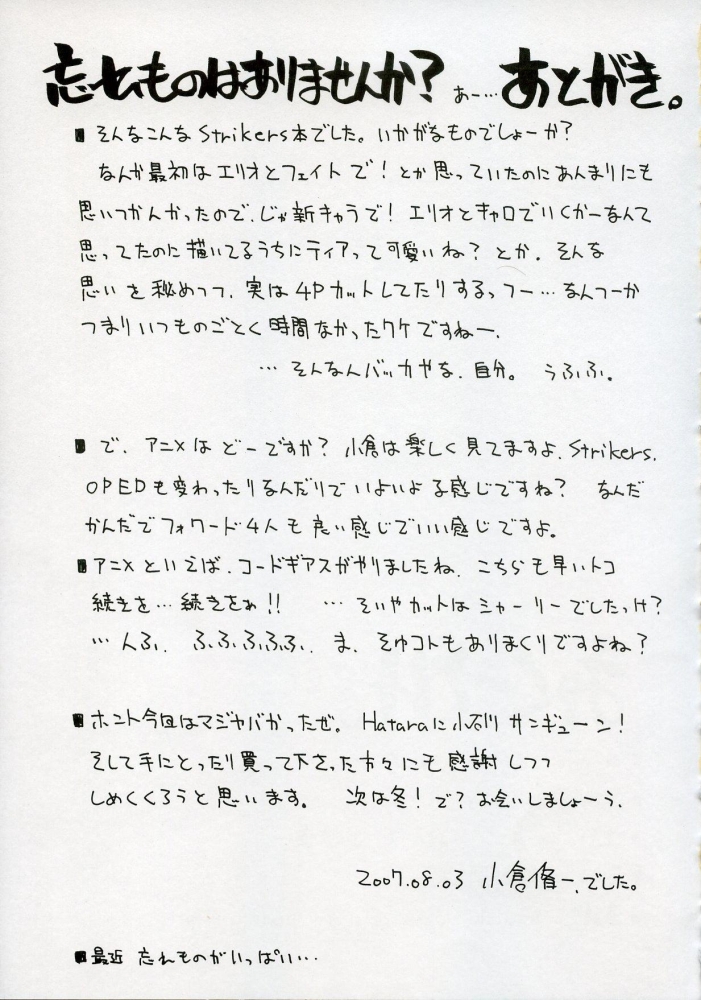 忘れものはありませんか？ あー… あとがき。
■ そんなこんな Strikers本でした。いかがなものでしょーか？
なんか最初は エリオとフェイト で！とか思っていたのにあんまりにも
思いつかんかったので、じゃ新キャラで！ エリオとキャロでいくかーなんて
思ってたのに描いてるうちにティアって可愛いね？とか、そんな
思いを秘めつつ、実は 4Pカットしてたりするっつー…なんつーか
つまりいつものごとく時間なかったワケですねー、
… そんなんバッカやな、自分。 うふふ。
■ で、アニメは どーですか？ 小倉は楽しく見てますよ、Strikers.
OPEDも変わったりなんだりでいよいよな感じですね？ なんだ
かんだでフォワード4人も良い感じでいい感じですよ。
■アニメといえば、コードギアスがやりましたね、こちらも早いトコ
続きを…続きをぉ!! … そいやカットは シャーリーでしたっけ？
… んふ、ふふふふふ、ま、そゆコトもありまくりですよね？
■ホント今回はマジヤバかったぜ。Hataraに小石川 サンギューン！
そして手にとったり買って下さった方々にも感謝しつつ
しめくくろうと思います。 次は冬！で？お会いしましょーう、
2007.08.03 小倉脩一、でした。
■最近 忘れものがいっぱい…